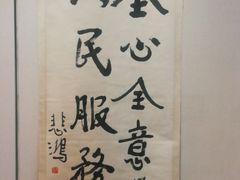 全心全意
民服務
悲鴻